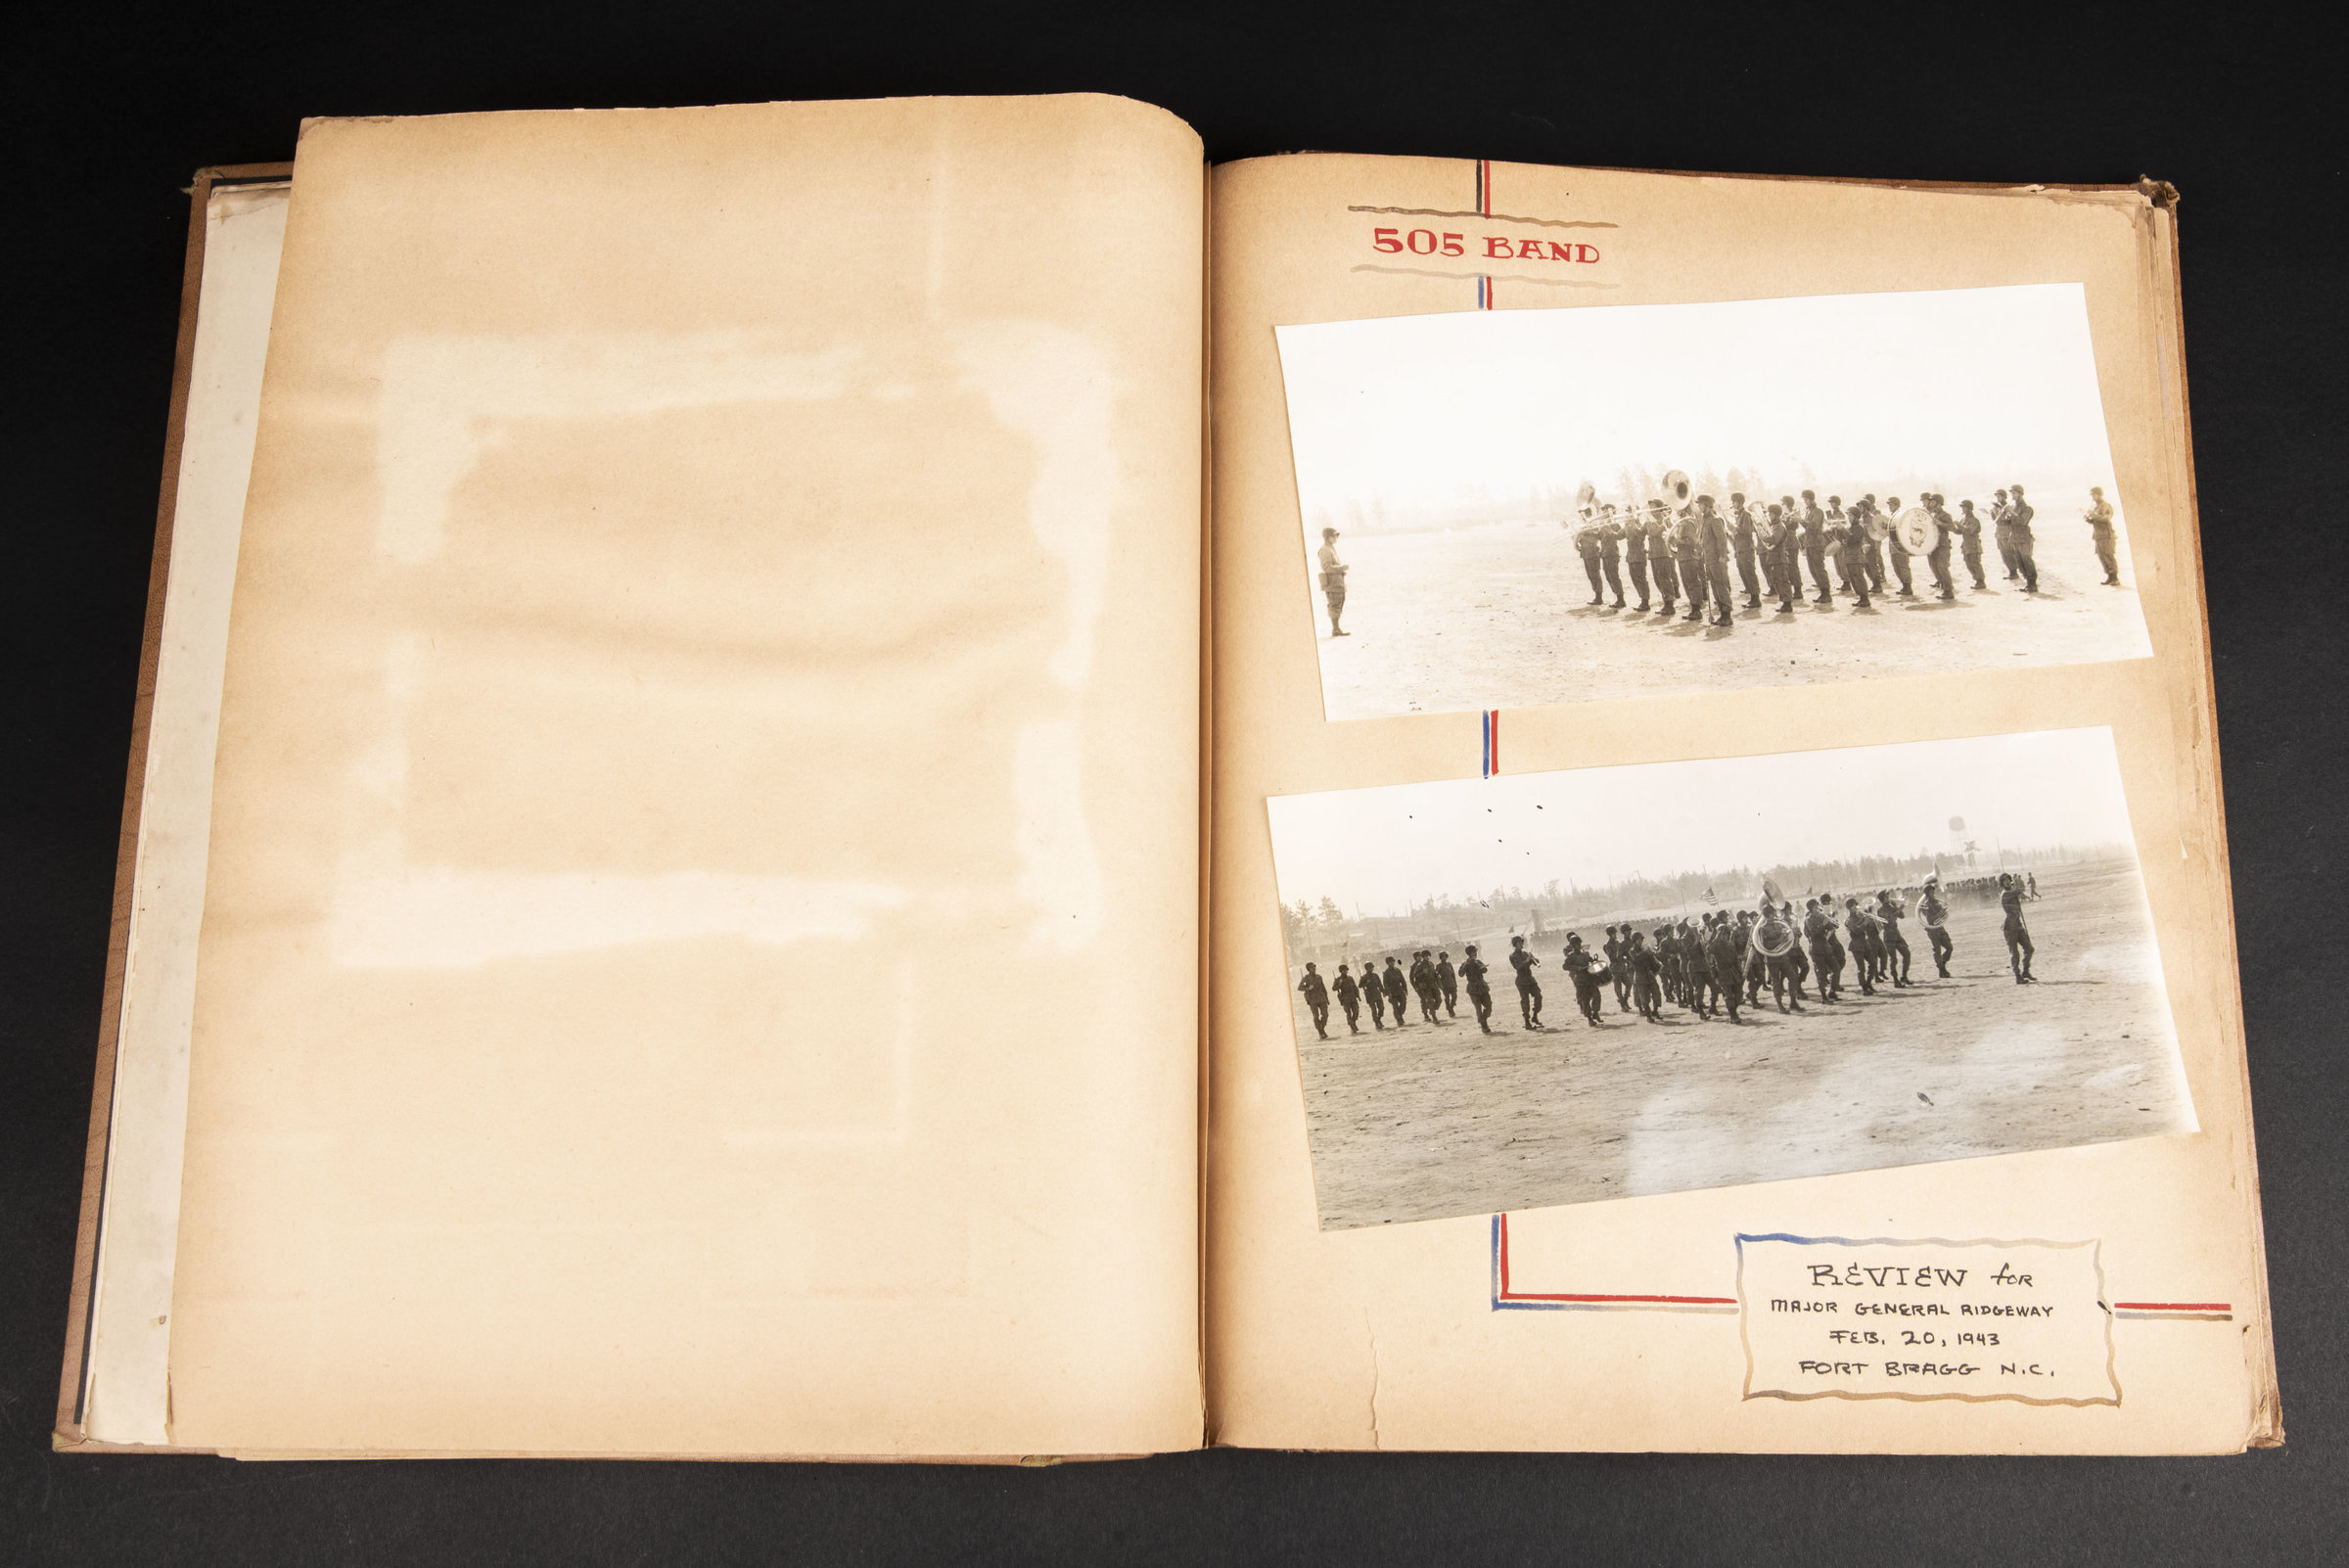 505 BAND
REVIEW for
MAJOR GENERAL RIDGEWAY
FEB. 20, 1943
FORT BRAGG N.C.